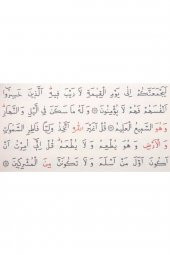 لَيَجْمَعَنَّكُمْ اِلٰى يَوْمِ الْقِيٰمَةِ لَا رَيْبَ ف۪يهِۜ اَلَّذ۪ينَ خَسِرُٓوا
اَنْفُسَهُمْ فَهُمْ لَا يُؤْمِنُونَ ۞ وَلَهُ مَا سَكَنَ فِي الَّيْلِ وَالنَّهَارِۜ
وَهُوَ السَّم۪يعُ الْعَل۪يمُ ۞ قُلْ اَغَيْرَ اللّٰهِ اَتَّخِذُ وَلِيًّا فَاطِرِ السَّمٰوَاتِ
وَالْاَرْضِ وَهُوَ يُطْعِمُ وَلَا يُطْعَمُۜ قُلْ اِنّ۪ٓي اُمِرْتُ اَنْ
اَكُونَ اَوَّلَ مَنْ اَسْلَمَ وَلَا تَكُونَنَّ مِنَ الْمُشْرِك۪ينَ ۞